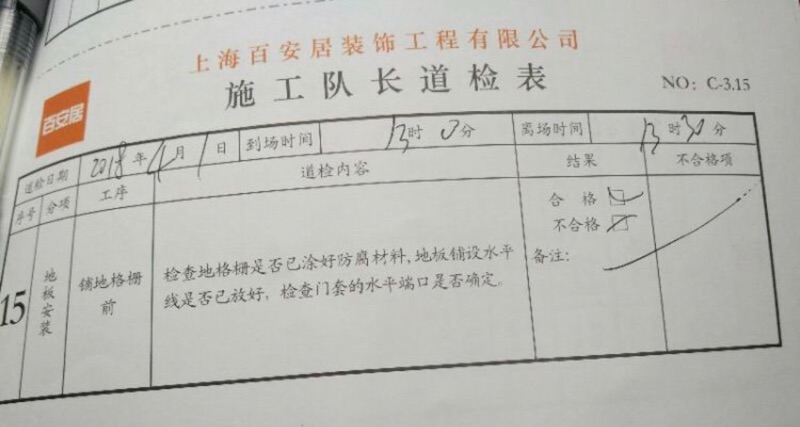 上海百安居装饰工程有限公司
百安居
施工队长道检表
NO: C-3.15
道检日期 2018年4月1日 到场时间 13时0分 离场时间 13时30分
序号 分项 工序 道检内容 结果 不合格项
15 地板安装 铺地格栅前
检查地格栅是否已涂好防腐材料,地板铺设水平
线是否已放好，检查门套的水平端口是否确定。
合格
不合格
备注: